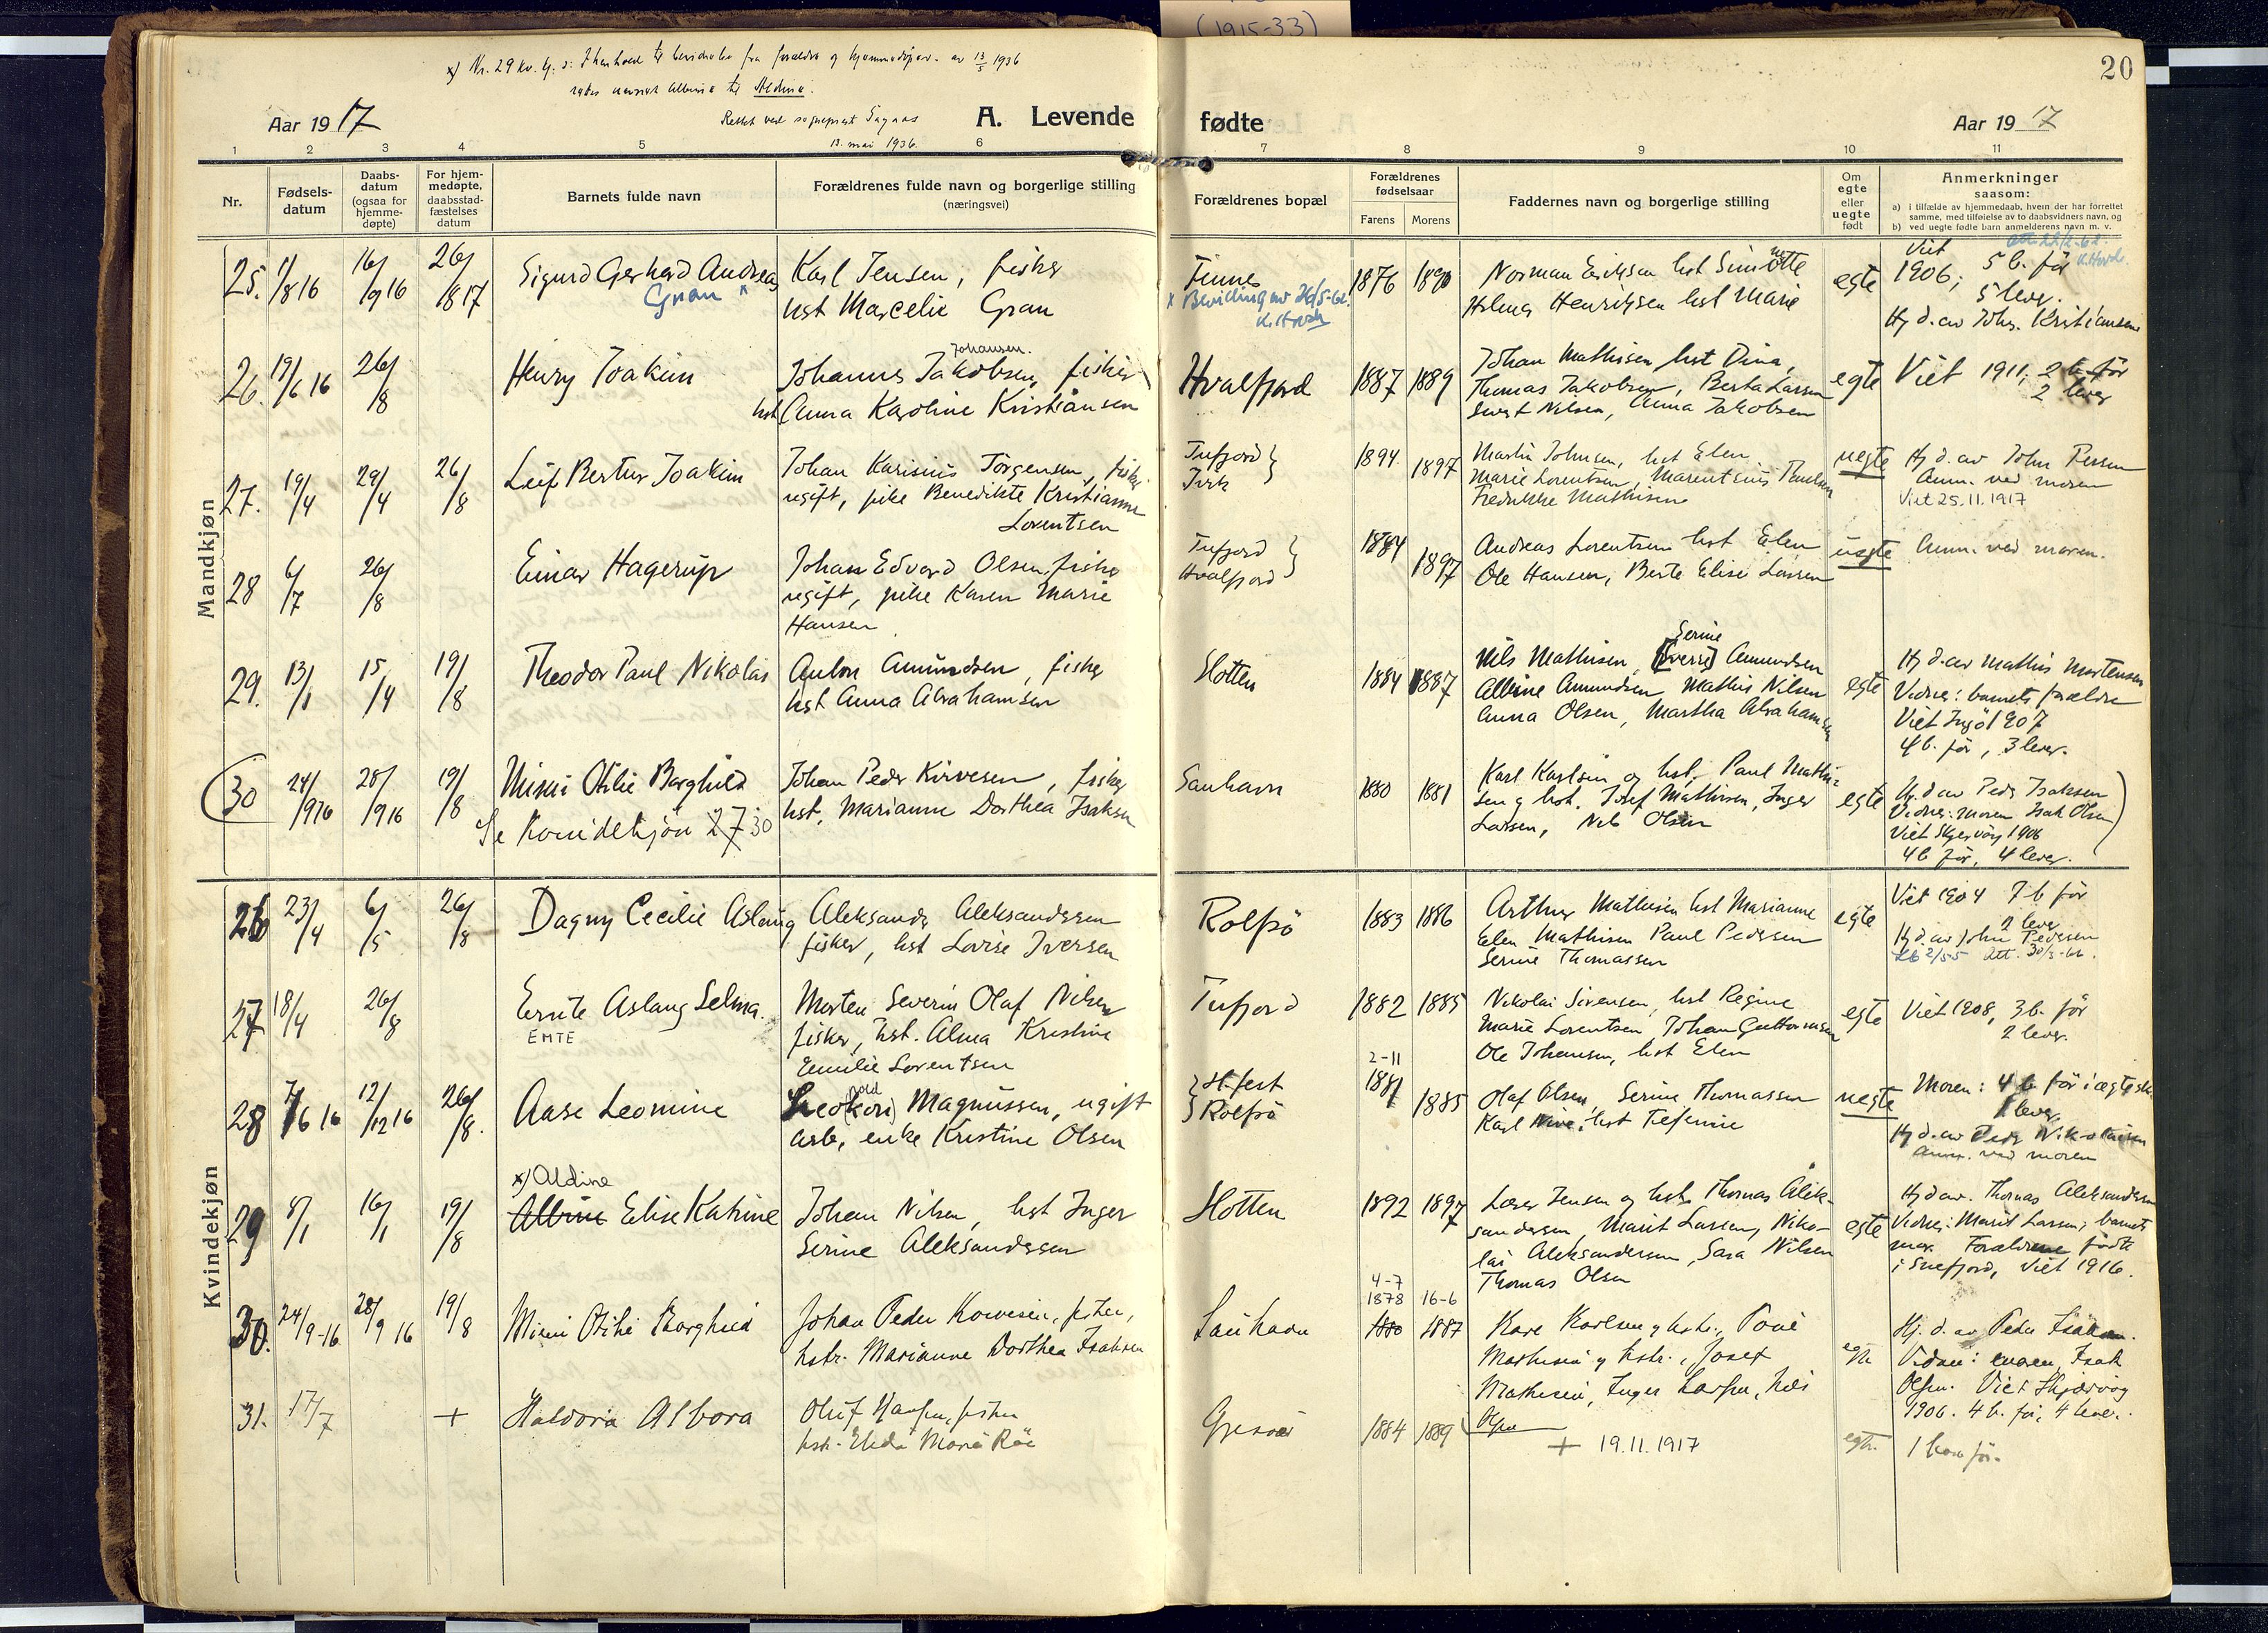 (1915-33)
20
x) Nr. 29 kv. kj.: fra forældre og hjemmedøper av 13/5 1936
rettes navnet Albine til Aldine.
Rettet ved sogneprest
13. mai 1936.
Aar 1917
A. Levende fødte
Aar 1917
1 2 3 4 5 6 7 8 9 10 11
Nr.
Fødsels-
datum
Daabs-
datum
(ogsaa for
hjemme-
døpte)
For hjem-
medøpte,
daabsstad-
fæstelses
datum
Barnets fulde navn
Forældrenes fulde navn og borgerlige stilling
(næringsvei)
Forældrenes bopæl
Forældrenes
fødselsaar
Farens Morens
Faddernes navn og borgerlige stilling
Om
egte
eller
uegte
født
Anmerkninger
saasom:
a) i tilfælde av hjemmedaab, hvem der har forrettet
samme, med tilføielse av to daabsvidners navn, og
b) ved uegte fødte barn anmelderens navn m. v.
Mandkjøn
25. 1/8 16 16/9 16 26/8 17
Sigurd Gerhard Andreas
Gran x
Karl Jensen, fisker
hst Marcelie Gran
Finnes
x Bevilling av 26/5-62.
K. Hovda
1876 1890
Norman Eriksen hst Simonette
Hilmar Henriksen hst Marie
egte
Viet
1906; 5 b. før
5 lever.
Hj d. av Johs. Kristiansen
26. 19/6 16 26/8
Henry Joakim
Johansen.
Johannes Jakobsen, fisker
hst Anna Karoline Kristiansen
Hvalfjord
1887 1889
Johan Mathisen hst Dina,
Thomas Jakobsen, Berta Larsen
Sivert Nilsen, Anna Jakobsen
egte
Viet 1911, 2 b. før
2 lever
27. 19/4 29/4 26/8
Leif Bertus Joakim
Johan Karisius Jörgensen, fisker
ugift, pike Benedikte Kristianne
Lorentsen
Tufjord
1894 1897
Martin Johnsen, hst Elen
Marie Lorentsen, Marentsius Paulsen
Fredrikke Mathisen
uegte
Hj d. av John Persen
Anm. ved moren
Viet 25.11.1917
28 6/7 26/8
Einar Hagerup
Johan Edvard Olsen, fisker
ugift, pike Karen Marie
Hansen
Tufjord
Hvalfjord
1884 1897
Andreas Lorentsen hst Elen
Ole Hansen, Berte Elise Larsen
uegte
Anm. ved moren.
29. 13/1 15/4 19/8
Theodor Paul Nikolai
Anton Amundsen, fisker
hst Anna Abrahamsen
Slotten
1884 1887
Serine
Nils Mathisen, [Sverre] Amundsen
Albine Amundsen, Mathis Nilsen
Anna Olsen, Martha Abrahamsen
egte
Hj d. av Mathis Mortensen
Vidner: barnets forældre
Viet Ingö 1907
4 b. før, 3 lever.
30 24/9 16 28/9 16 19/8
Mimi Otilie Borghild
Se Kvindekjøn 27 30
Johan Peder Korvesen, fisker
hst. Marianne Dorthea Isaksen
Sanhavn
1880 1881
Karl Karlsen og hst., Paul Mathi-
sen og hst. Josef Mathisen, Inger
Larsen, Nils Olsen
egte
Hj. d av Peder Isaksen
Vidner: moren, Isak Olsen
Viet Skjervøy 1906
4 b før, 4 lever.
Kvindekjøn
26 23/4 6/5 26/8
Dagny Cecilie Aslaug
Aleksander Aleksandersen
fisker, hst Lovise Iversen
Rolfsö
1883 1886
Arthur Mathisen hst Marianne
Elen Mathisen Paul Pedersen
Serine Thomassen
egte
Viet 1904 7 b før
2 lever
Hj d. av John Pedersen
Att. 30/3-66.
27 18/4 26/8
Emte Aslaug Selma.
EMTE
Morten Severin Olaf Nilsen
fisker, hst. Alma Kristine
Emilie Lorentsen
Tufjord
1882 1885
Nikolai Sivensen, hst Regine
Marie Lorentsen, Johan Guttormsen
Ole Johansen, hst Elen
egte
Viet 1908, 3 b. før
2 lever.
28 7/6 16 12/12 16 26/8.
Aase Leomine
Leo(kon) Magnussen, ugift
arb, enke Kristine Olsen
H.fest
Rolfsö
2-11
1881 1885
Olaf Olsen, Serine Thomassen
Karl Nive, hst Tefenie
uegte
Moren: 4 b før i ægtesk.
1 lever
Hj d. av Peder Nikolaisen
Anm. ved moren
29 8/1 16/1 19/8
x) Aldine
Albine Elise Katrine
Johan Nilsen, hst Inger
Serine Aleksandersen
Slotten
1892 1897
Laser Jensen og hst. Thomas Alek-
sandersen, Marit Larsen, Niko-
lai Aleksandersen, Sara Nilsen
Thomas Olsen
egte
Hj d av. Thomas Aleksandersen
Vidner: Marit Larsen, barnets
mor. Forældrene födt
i Snefjord, viet 1916.
30. 24/9-16 28/9 16 19/8
Mimi Otilie Borghild
Johan Peder Korvesen, fisker,
hstr. Marianne Dorthea Isaksen
Sanhavn
4-7
1878 16-6
1880 1887
Kare Karlsen og hstr., Povel
Mathisen og hstr., Josef
Mathisen, Inger Larsen, Nils
Olsen
egte
Hj. d. av Peder Isaksen.
Vidner: moren, Isak
Olsen. Viet Skjærvøy
1906. 4 b. før, 4 lever.
31. 17/7 +
Haldora Albora
Oluf Hansen, fisker
hstr. Elida Marie Röe
Gjesvær
1884 1889
+ 19.11.1917
egte.
1 barn før.